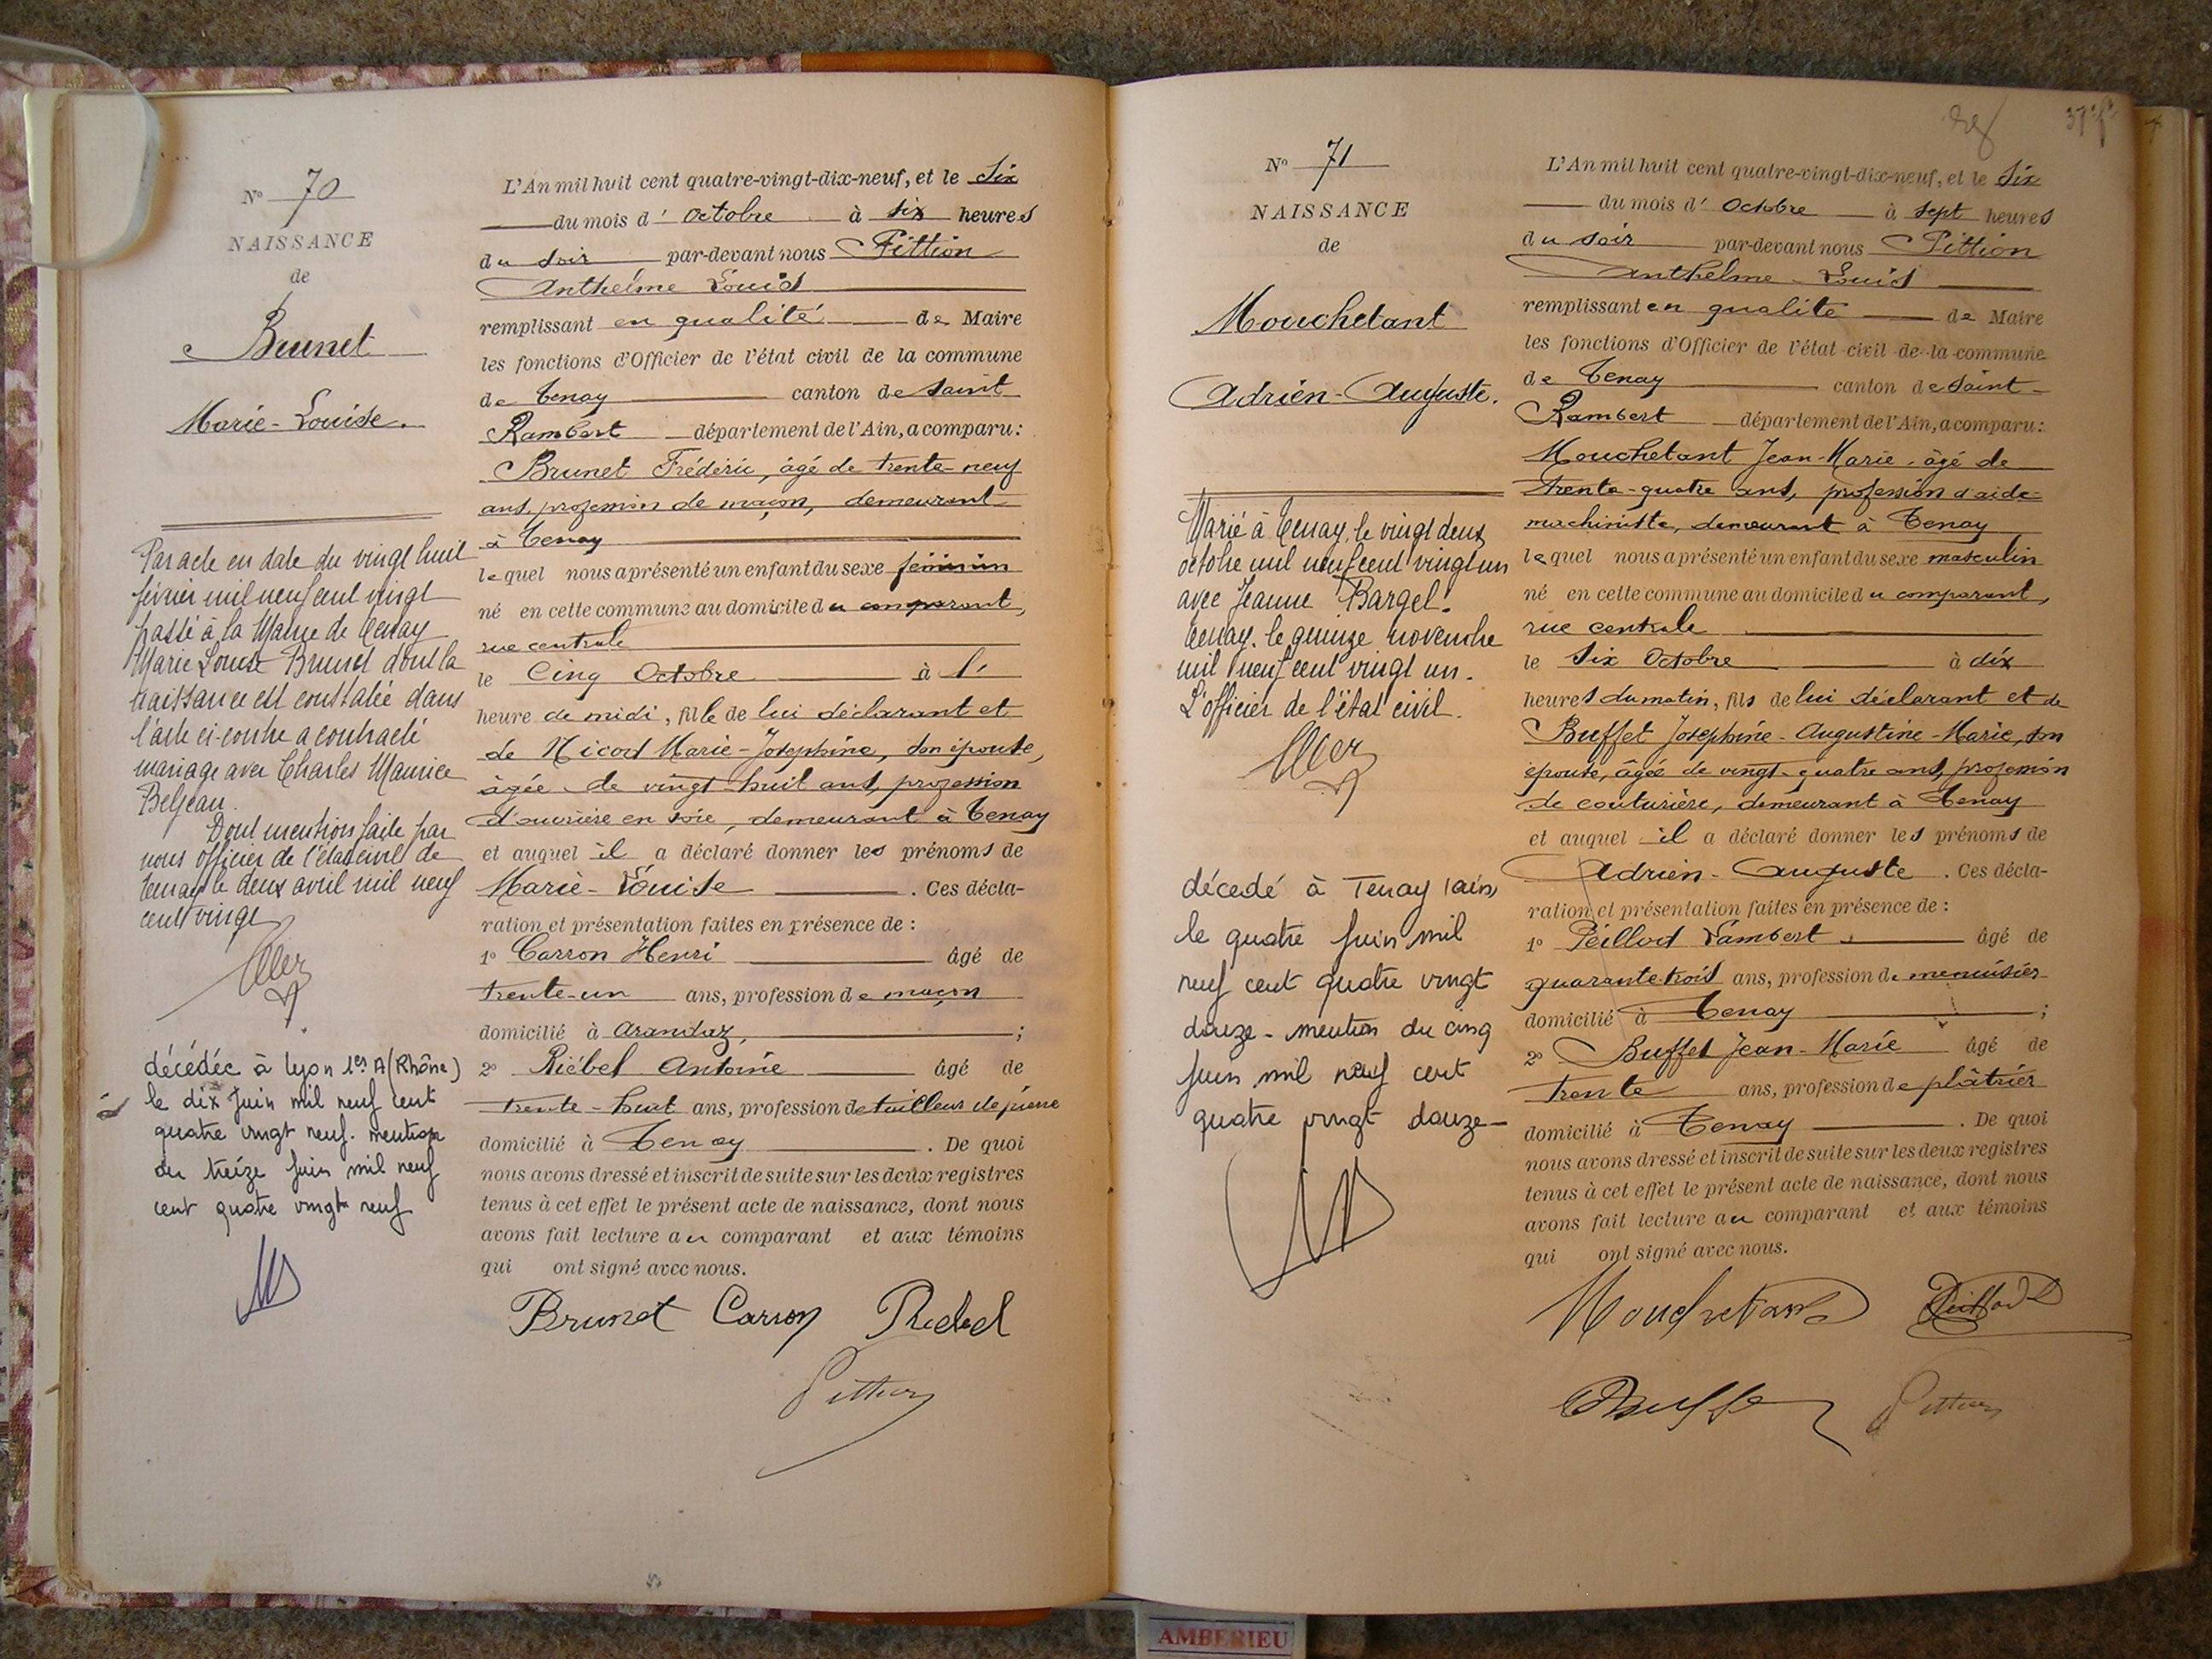 N° 70
NAISSANCE
de
Brunet
Marie-Louise.
Par acte en date du vingt huit
février mil neuf cent vingt
passé à la Mairie de Tenay
Marie Louise Brunet dont la
naissance est constatée dans
l'acte ci-contre a contracté
mariage avec Charles Maurice
Beljeau.
Dont mention faite par
nous officier de l'état civil de
Tenay le deux avril mil neuf
cent vingt
décédée à Lyon 1er A (Rhône)
le dix juin mil neuf cent
quatre vingt neuf. mention
du treize juin mil neuf
cent quatre vingt neuf
L'An mil huit cent quatre-vingt-dix-neuf, et le six
du mois d' octobre à six heures
du soir par-devant nous Pittion
Anthelme Louis
remplissant en qualité de Maire
les fonctions d'Officier de l'état civil de la commune
de Tenay canton de Saint
Rambert département de l'Ain, a comparu:
Brunet Frédéric, âgé de trente-neuf
ans, profession de maçon, demeurant
à Tenay
lequel nous a présenté un enfant du sexe féminin
né en cette commune au domicile du comparant,
rue centrale
le Cinq Octobre à l'
heure de midi, fille de lui déclarant et
de Nicod Marie-Josephine, son épouse,
âgée de vingt-huit ans, profession
d'ouvrière en soie, demeurant à Tenay
et auquel il a déclaré donner les prénoms de
Marie-Louise. Ces décla-
ration et présentation faites en présence de :
1° Carron Henri âgé de
trente-un ans, profession de maçon
domicilié à Arandaz, ;
2° Riébel Antoine âgé de
trente-huit ans, profession de tailleur de pierre
domicilié à Tenay. De quoi
nous avons dressé et inscrit de suite sur les deux registres
tenus à cet effet le présent acte de naissance, dont nous
avons fait lecture au comparant et aux témoins
qui ont signé avec nous.
Brunet Carron Riebel
Pittion
37
N° 71
NAISSANCE
de
Mouchetant
Adrien-Auguste.
Marié à Tenay, le vingt deux
octobre mil neuf cent vingt un
avec Jeanne Bargel.
Tenay, le quinze novembre
mil neuf cent vingt un.
L'officier de l'état civil.
décedé à Tenay (ain)
le quatre juin mil
neuf cent quatre vingt
douze - mention du cinq
juin mil neuf cent
quatre vingt douze -
L'An mil huit cent quatre-vingt-dix-neuf, et le six
du mois d' octobre à sept heures
du soir par-devant nous Pittion
Anthelme-Louis
remplissant en qualité de Maire
les fonctions d'Officier de l'état civil de la commune
de Tenay canton de Saint-
Rambert département de l'Ain, a comparu:
Mouchetant Jean-Marie, âgé de
trente-quatre ans, profession d'aide-
machiniste, demeurant à Tenay
lequel nous a présenté un enfant du sexe masculin
né en cette commune au domicile du comparant,
rue centrale
le Six Octobre à dix
heures du matin, fils de lui déclarant et de
Buffet Josephine-Augustine-Marie, son
épouse, âgée de vingt-quatre ans, profession
de couturière, demeurant à Tenay
et auquel il a déclaré donner les prénoms de
Adrien-Auguste. Ces décla-
ration et présentation faites en présence de :
1° Peillod Lambert, âgé de
quarante-trois ans, profession de menuisier
domicilié à Tenay ;
2° Buffet Jean-Marie âgé de
trente ans, profession de plâtrier
domicilié à Tenay. De quoi
nous avons dressé et inscrit de suite sur les deux registres
tenus à cet effet le présent acte de naissance, dont nous
avons fait lecture au comparant et aux témoins
qui ont signé avec nous.
Mouchetant Peillod
Buffet Pittion
AMBERIEU